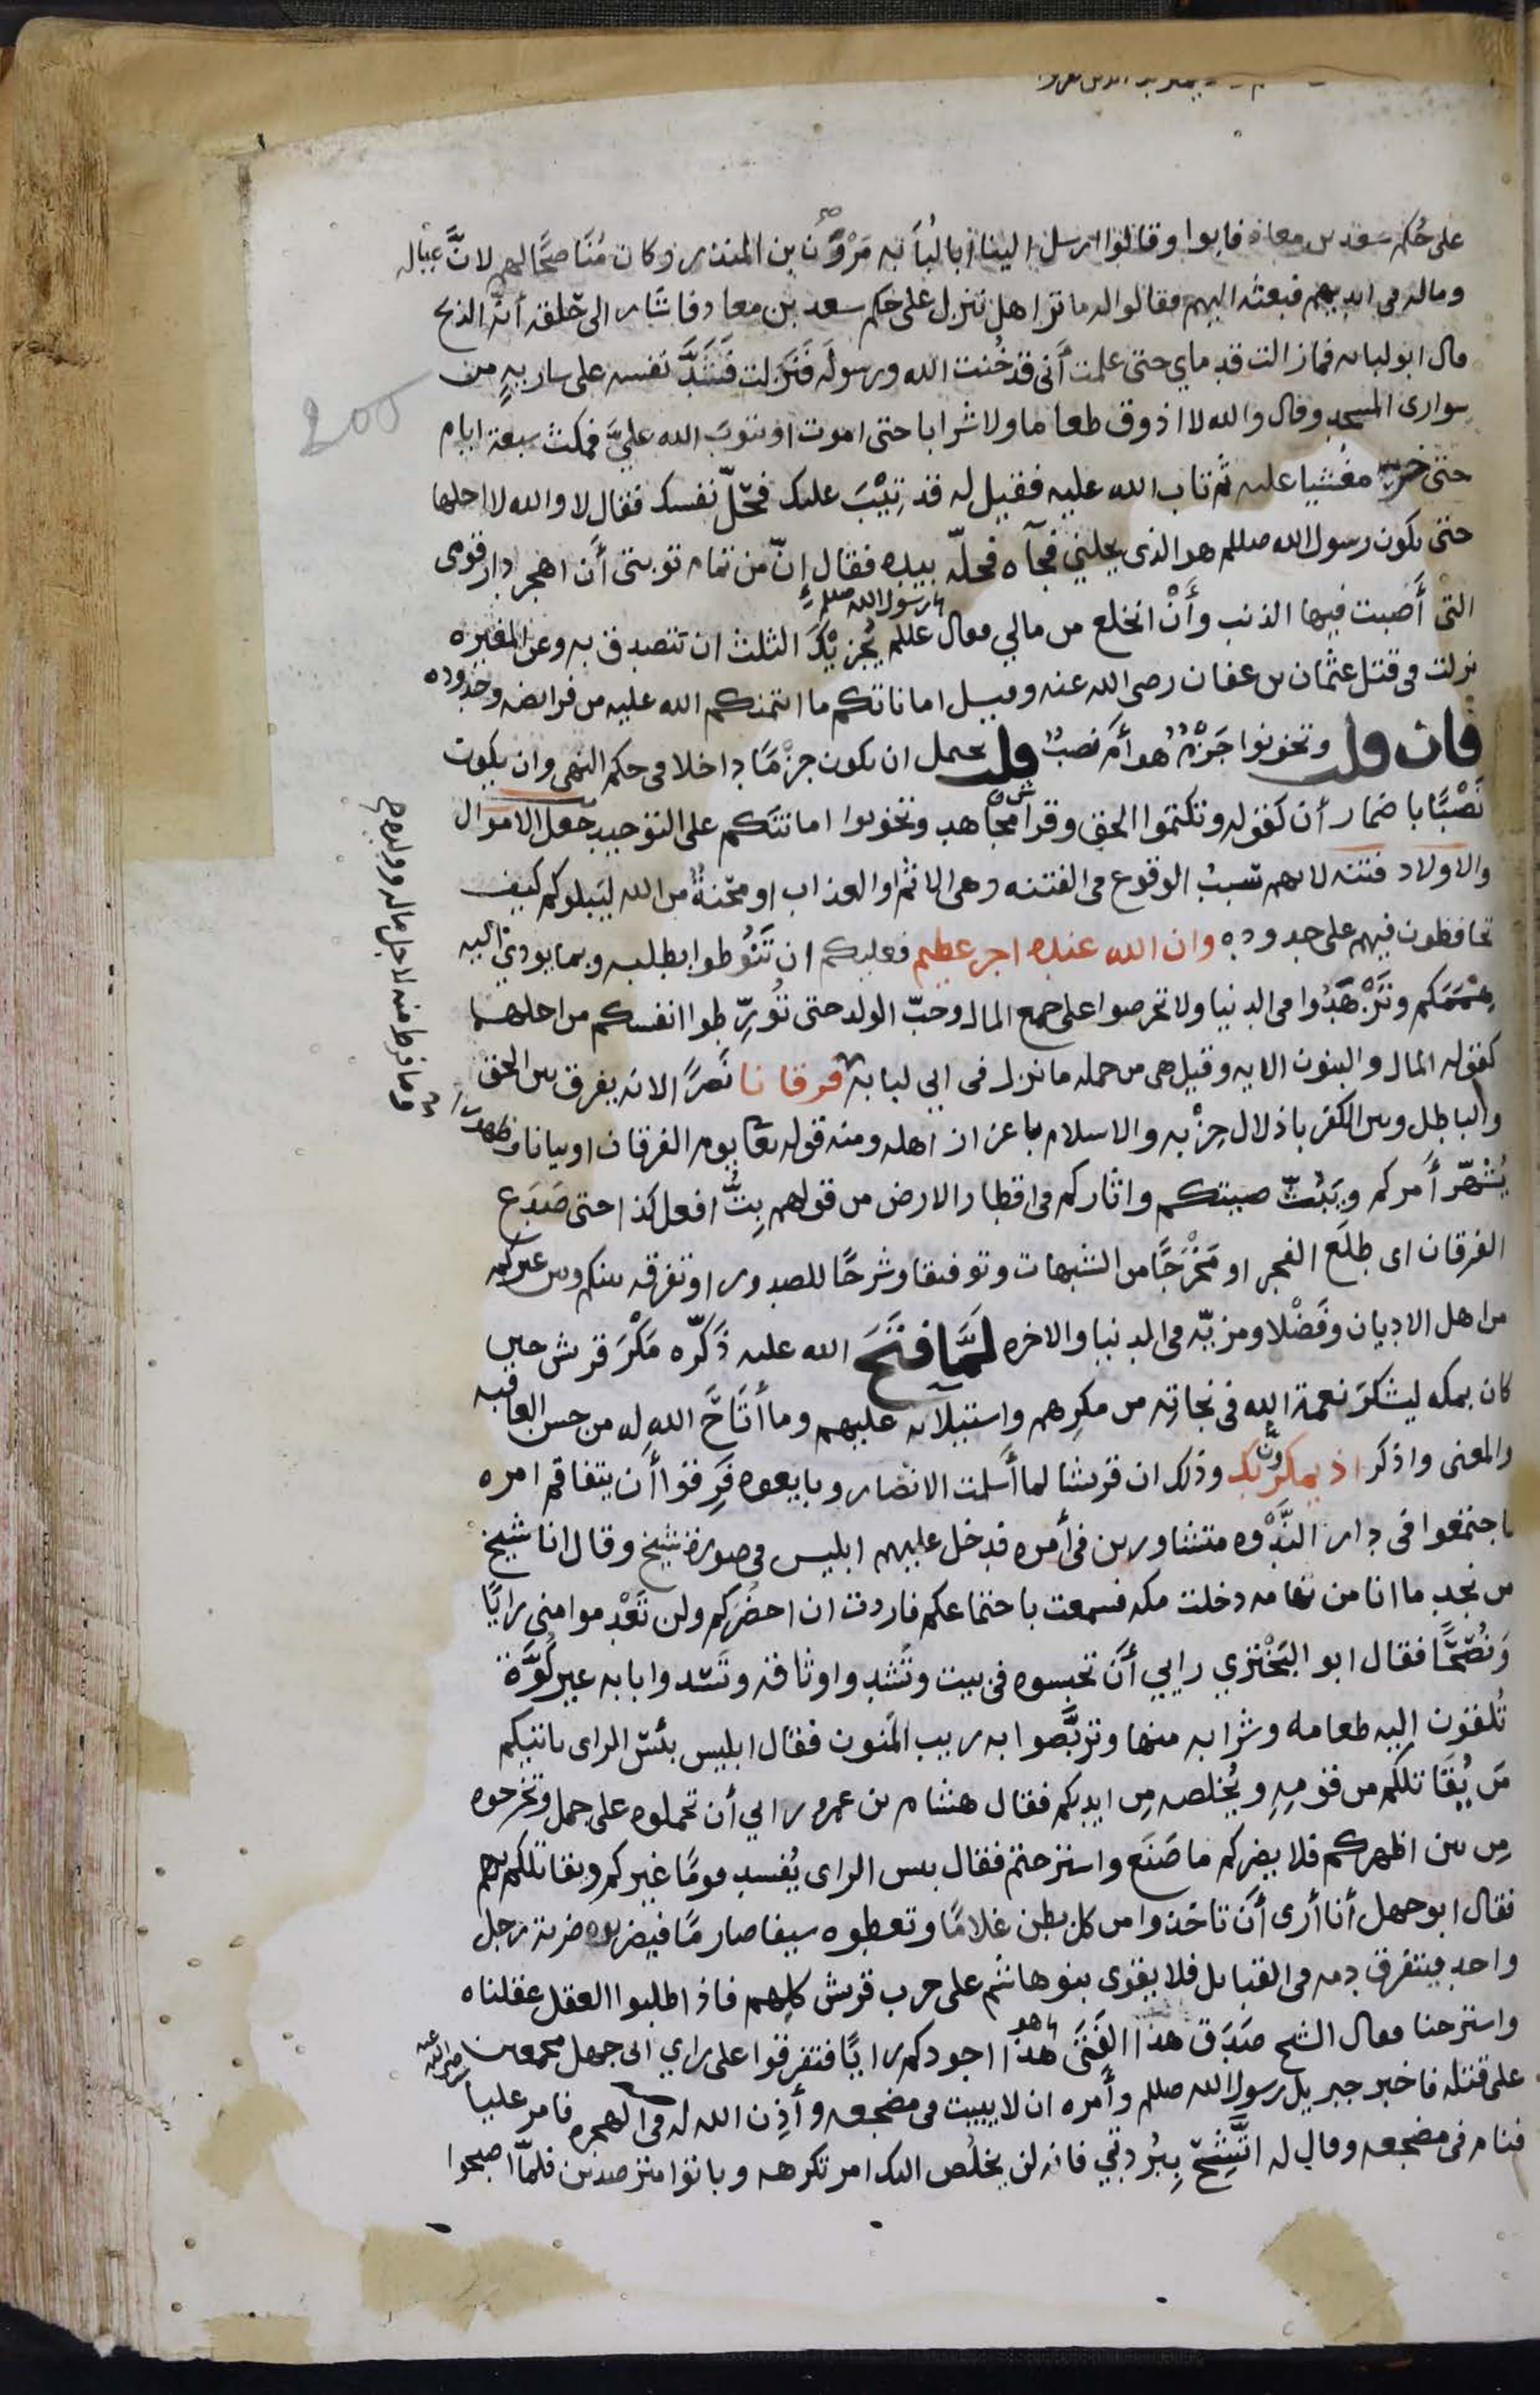 على حُكم سعد بن معاذ فابوا وقالوا ارسل الينا ابا لُبَابَه مَرْوَٰن بن المنذر وكان مُنَاصحًا لهم لانَّ عياله
وماله فى ايديهم فبعثه اليهم فقالوا له ما ترا هل ننزل على حكم سعد بن معاد فاشار الى حَلقه أنه الذبح
قال ابو لبابه فما زالت قدماي حتى علمت أَنى قد خُنت الله ورسولَه فَنَزلت فَشَدَّ نفسه على ساريهٍ من
سوارى المسجد وقال والله لا اذوق طعاما ولا شرابا حتى اموت او يتوبَ الله عليَّ فمكث سبعة ايام
حتى خرّ مغشيا عليه ثم تاب الله عليه فقيل له قد تِيْبَ عليك فحُلّ نفسك فقال لا والله لا احلها
حتى يكون رسول الله صللم هو الذى يحلني فجآه فحلّه بيده فقال إنّ من تمام توبتى أَن اهجر دار قومى
التى أَصبت فيها الذنب وأَنْ انخلع من مالي فقال عللم يُجزيْكَ الثلث ان تتصدق به وعن المغيره
يا رسول الله صللم
نزلت فى قتل عثمان بن عفان رضى الله عنه وقيل اماناتكم ما ائتمنكم الله عليه من فرايضه وحدوده
فان قلت وتخونوا جَزْمٌ هو أَم نصبٌ قلت يحتمل ان يكون جزْمًا داخلا فى حكم النهى وان يكون
نَصْبًا باضمار أَن كقوله وتكتموا الحق وقرأ مجاهد وتخونوا امانتكم على التوحيد جعل الاموال
والاولاد فتنة لانهم سببُ الوقوع فى الفتنه وهى الاثم او العذاب او مِحْنَةٌ من الله ليَبلوكم كيف
تحافظون فيهم على حدوده وان الله عنده اجر عظيم فعليكم ان تَنُوطوا بطلبه وبما يودي اليه
هِمَمَكم وتَزْهَدُوا فى الدنيا ولا تحرصوا على جمع المال وحبّ الولد حتى تُورّطوا انفسكم من اجلهما
كقوله المال والبنون الايه وقيل هى من جمله ما نزل فى ابى لبابه فرقانا نَصْرًا لانه يفرق بين الحق
وما فرط منه لاجل ماله وولده
والباطل وبين الكفر باذلال حِزْبه والاسلام باعزاز اهله ومنه قوله تعا يوم الفرقان او بيانا وظهورا
يُشْهّر أَمركم ويَبُثّ صيتكم واثاركم فى اقطار الارض من قولهم بِتُّ افعل كذا حتى صَدَع
الفرقان اى طلَع الفجر او مَخْرَجًا من الشبهات وتوفيقا وشرحًا للصدور او تفرقه بينكم وبين غيركم
من اهل الاديان وفَضْلا ومزيّه فى الدنيا والاخره لَمَّا فَتَحَ الله عليه ذَكّره مَكْرَ قريش حين
كان بمكه ليشكرَ نعمة الله فى نجاتِه من مكرِهم واستيلآيه عليهم وما أَتَاحَ الله له من حسن العاقبه
والمعنى واذكر اذ يمكرون بك وذلك ان قريشا لما أسلمت الانصار وبايعوه فَرِقوا أَن يتفاقم امره
فاجتمعوا فى دار النَّدْوه متشاورين فى أَمره فدخل عليهم ابليس فى صورة شيخ وقال انا شيخ
من نجد ما انا من تهامه دخلت مكه فسمعت باجتماعكم فاردت ان احضُركم ولن تَعْدموا منى رايًا
وَنُصْحًا فقال ابو البَخْتري رايى أَن تحبسوه فى بيت وتَشدوا وثاقه وتَشدوا بابه غير كُوَّة
تُلقون اليه طعامه وشرابه منها وتربَّصوا به ريب المنون فقال ابليس بئس الراى ياتيكم
مَن يُقَاتلكم من قومِه ويُخلصه مِن ايديكم فقال هشام بن عمرو رايي أن تحملوه على جمل وتخرجوه
مِن بين اظهركم فلا يضركم ما صَنَع واسترحتم فقال بيس الراى يُفسد قومًا غيركم ويقاتلكم بهم
فقال ابو جهل أنا أرى أَن تاخذوا من كل بطن غلامًا وتعطوه سيفا صارمًا فيضربوه ضربة رجل
واحد فيتفرق دمه فى القبايل فلا يقوى بنو هاشم على حرب قريش كلِهم فاذا طلبوا العقل عقلناه
واسترحنا فقال الشيخ صَدَق هذا الفَتَى هو اجودكم رايًا فتفرقوا على راي ابى جهل مجمعين
على قتله فاخبر جبريل رسول الله صللم وأمره ان لا يبيت فى مضجعه وأَذِن الله له فى الهجره فامر عليا رضى الله عنه
فنام فى مضجعه وقال له اتَّشِحْ بِبُردتي فانه لن يخلُص اليك امر تكرهه وباتوا مترصدين فلمّا اصبحوا